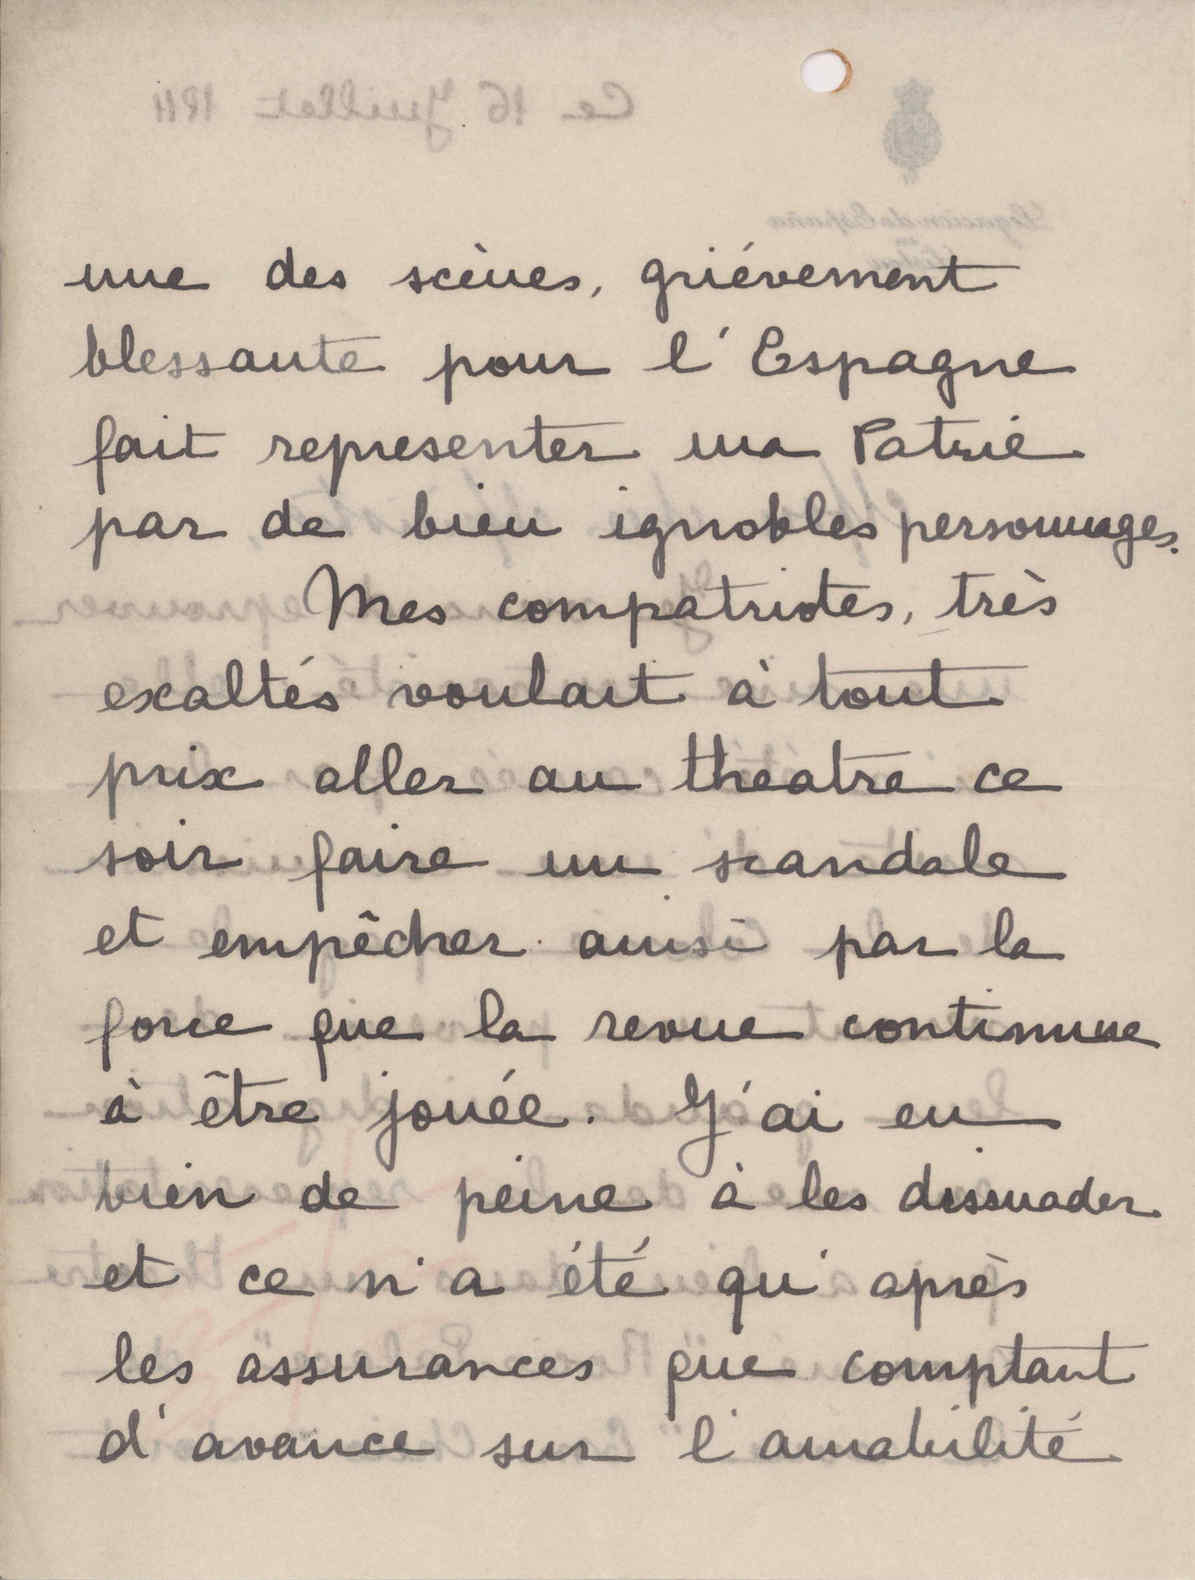 une des scènes, griévement
blessante pour l'Espagne
fait representer ma Patrie
par de bien ignobles personnages.
Mes compatriotes, très
exaltés voulait à tout
prix aller au theatre ce
soir faire un scandale
et empêcher ainsi par la
force que la revue continue
à être jouée. J'ai eu
bien de peine à les dissuader
et ce n'a été qu'après
les assurances que comptant
d'avance sur l'amabilité